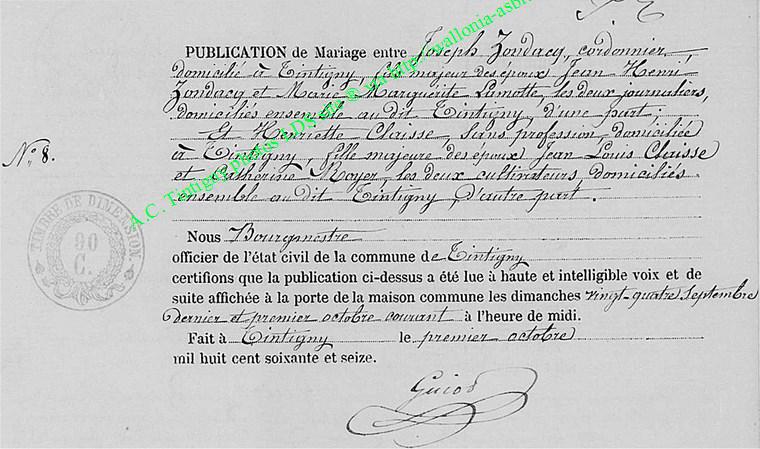 PUBLICATION de Mariage entre Joseph Zondacq, cordonnier,
domicilié à Tintigny, fils majeur des époux Jean Henri
Zondacq et Marie Marguerite Lamotte, les deux journaliers,
domiciliés ensemble au dit Tintigny, d'une part;
Et Henriette Claisse, sans profession, domiciliée
N° 8.
à Tintigny, fille majeure des époux Jean Louis Claisse
et Catherine Noyer, les deux cultivateurs, domiciliés
ensemble au dit Tintigny, d'autre part.
TIMBRE DE DIMENSION.
90
C.
Nous Bourgmestre
officier de l'état civil de la commune de Tintigny
certifions que la publication ci-dessus a été lue à haute et intelligible voix et de
suite affichée à la porte de la maison commune les dimanches vingt-quatre septembre
dernier et premier octobre courant à l'heure de midi.
Fait à Tintigny le premier octobre
mil huit cent soixante et seize.
A.C. Tintigny photos LDS via http://wallonia-asb